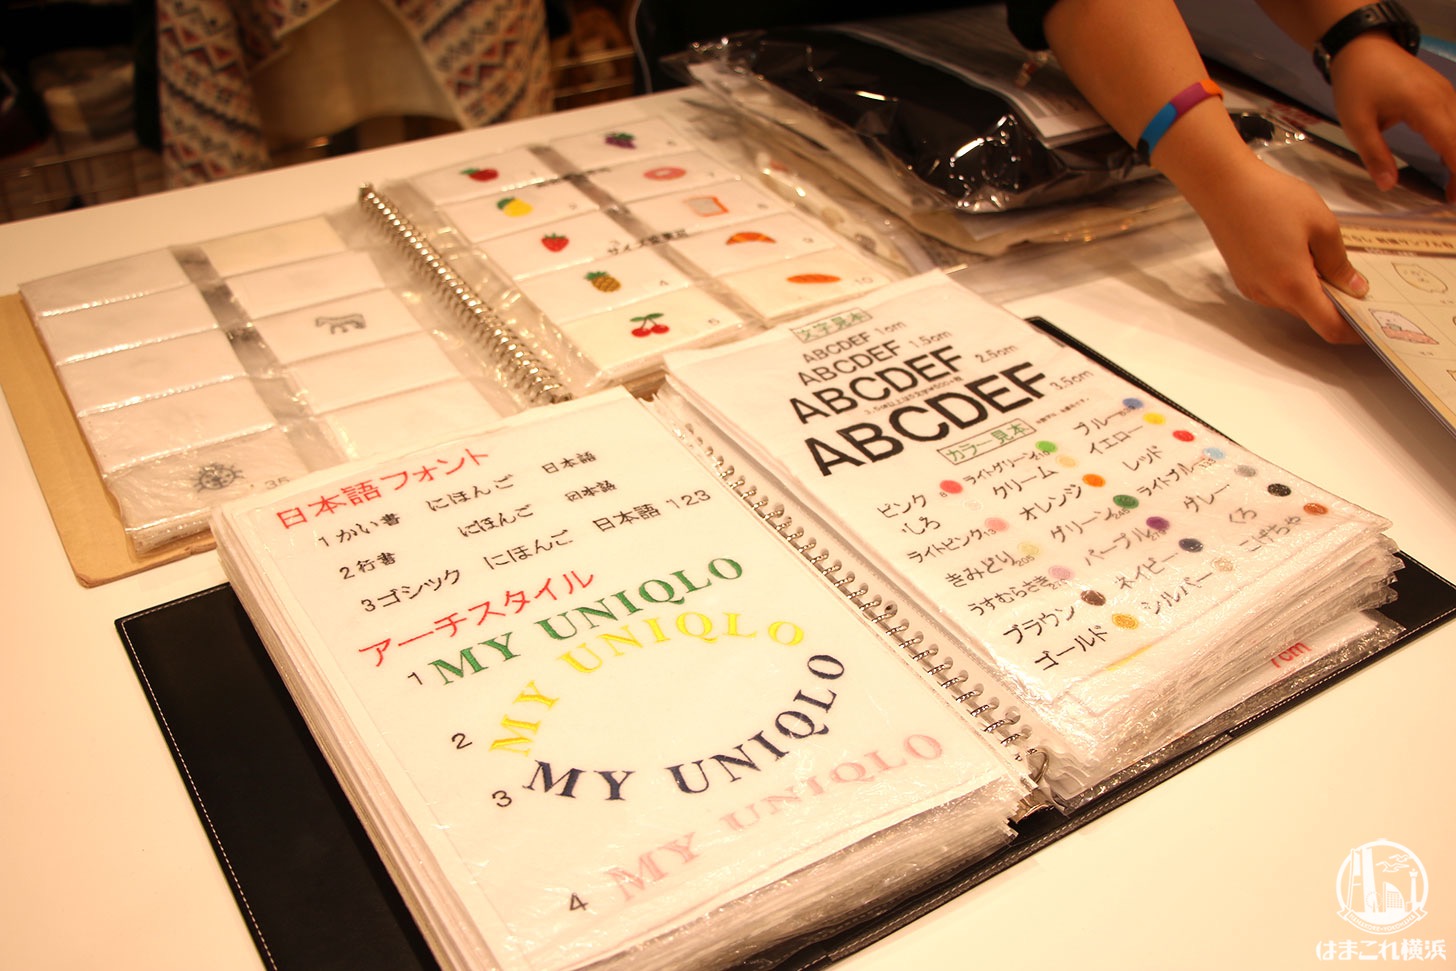 1
2
3
4
5
6
7
9
10
35
日本語フォント
1 かい書 にほんご 日本語
2 行書 にほんご 日本語
3 ゴシック にほんご 日本語 123
アーチスタイル
1 MY UNIQLO
2 MY UNIQLO
3 MY UNIQLO
4 MY UNIQLO
文字見本
ABCDEF 1cm
ABCDEF 1.5cm
ABCDEF 2.5cm
ABCDEF 3.5cm
カラー見本
ピンク ライトグリーン ブルー
しろ クリーム イエロー
ライトピンク オレンジ レッド
きみどり グリーン ライトブルー
うすむらさき パープル グレー
ブラウン ネイビー くろ
ゴールド シルバー こげちゃ
7cm
はまこれ横浜